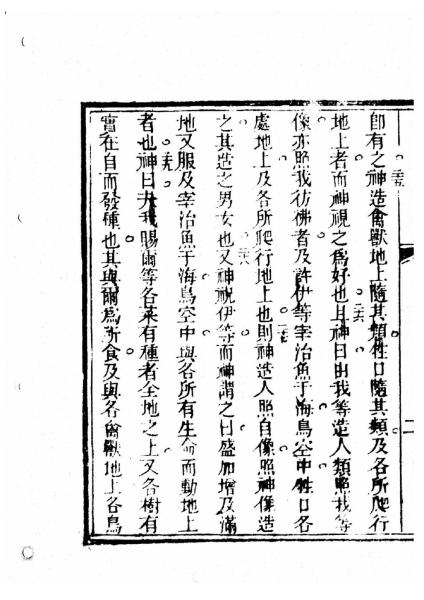 即有之神造禽獸地上隨其類牲口隨其類及各所爬行
地上者而神視之為好也且神曰由我等造人類照我等
像亦照我彷彿者及許伊等宰治魚于海鳥空中牲口各
處地上及各所爬行地上也則神造人照自像照神像造
之其造之男女也又神祝伊等而神謂之曰盛加增及滿
地又服及宰治魚于海鳥空中與各所有生命而動地上
者也神曰夫我賜爾等各菜有種者全地之上又各樹有
實在自而發種也其與爾為所食及與各禽獸地上各鳥
二